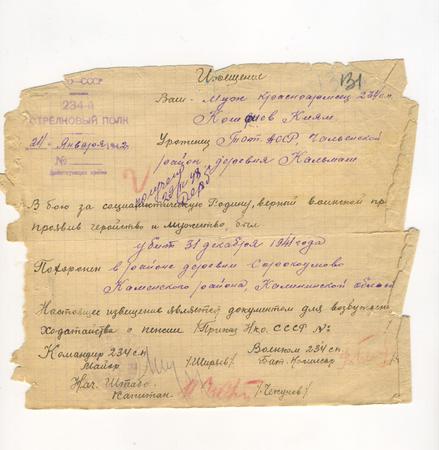 Извещение
131
НКО-СССР
234-й
СТРЕЛКОВЫЙ ПОЛК
24 Января 1942
№
Действующая армия
Ваш муж красноармеец 234 сп
Киям
Уроженец Тат. АССР
район деревня
получено
В бою за социалистическую Родину, верный воинской пр
проявив геройство и мужество, был
убит 31 декабря 1941 года
Похоронен в районе деревни
района, Калининской области
Настоящее извещение является документом для возбужден
ходатайства о пенсии (Приказ Нко. СССР №
Командир 234 сп
Майор /Ширяев/
Военком 234 сп
Бат. Комиссар
Нач. Штаба
Капитан